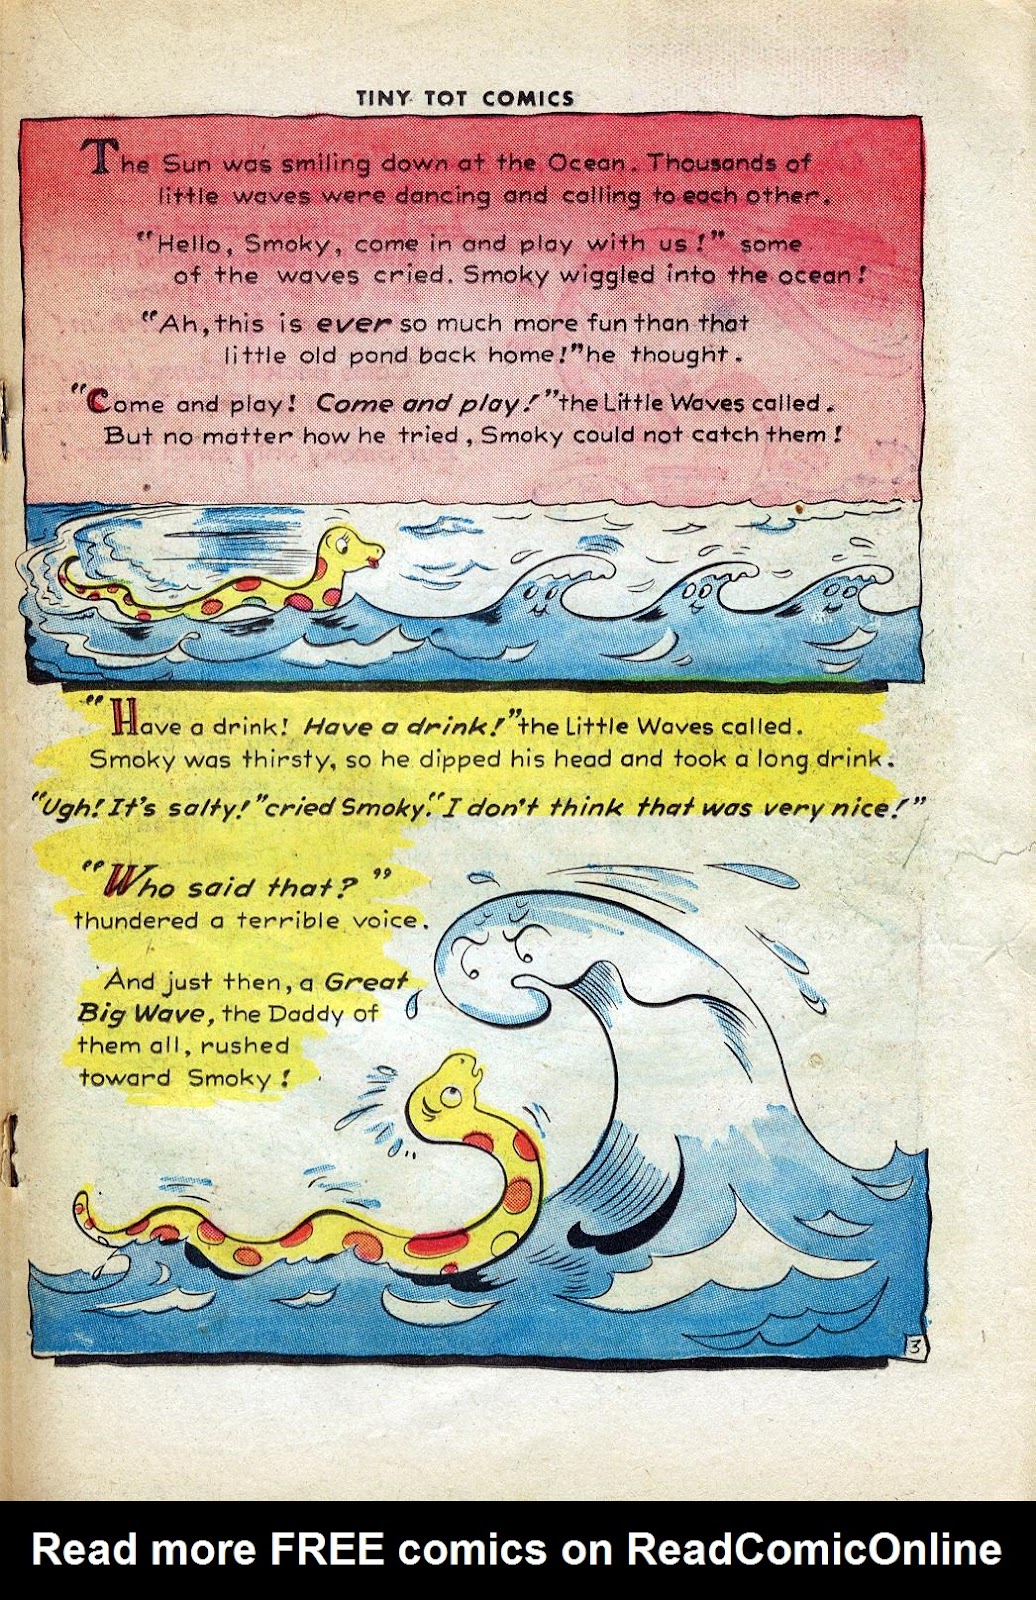 TINY TOT COMICS
The Sun was smiling down at the Ocean. Thousands of
little waves were dancing and calling to each other.
"Hello, Smoky, come in and play with us!" some
of the waves cried. Smoky wiggled into the ocean!
"Ah, this is ever so much more fun than that
little old pond back home!" he thought.
"Come and play! Come and play!" the Little Waves called.
But no matter how he tried, Smoky could not catch them!
"Have a drink! Have a drink!" the Little Waves called.
Smoky was thirsty, so he dipped his head and took a long drink.
"Ugh! It's salty!" cried Smoky. "I don't think that was very nice!"
"Who said that?"
thundered a terrible voice.
And just then, a Great
Big Wave, the Daddy of
them all, rushed
toward Smoky!
3
Read more FREE comics on ReadComicOnline